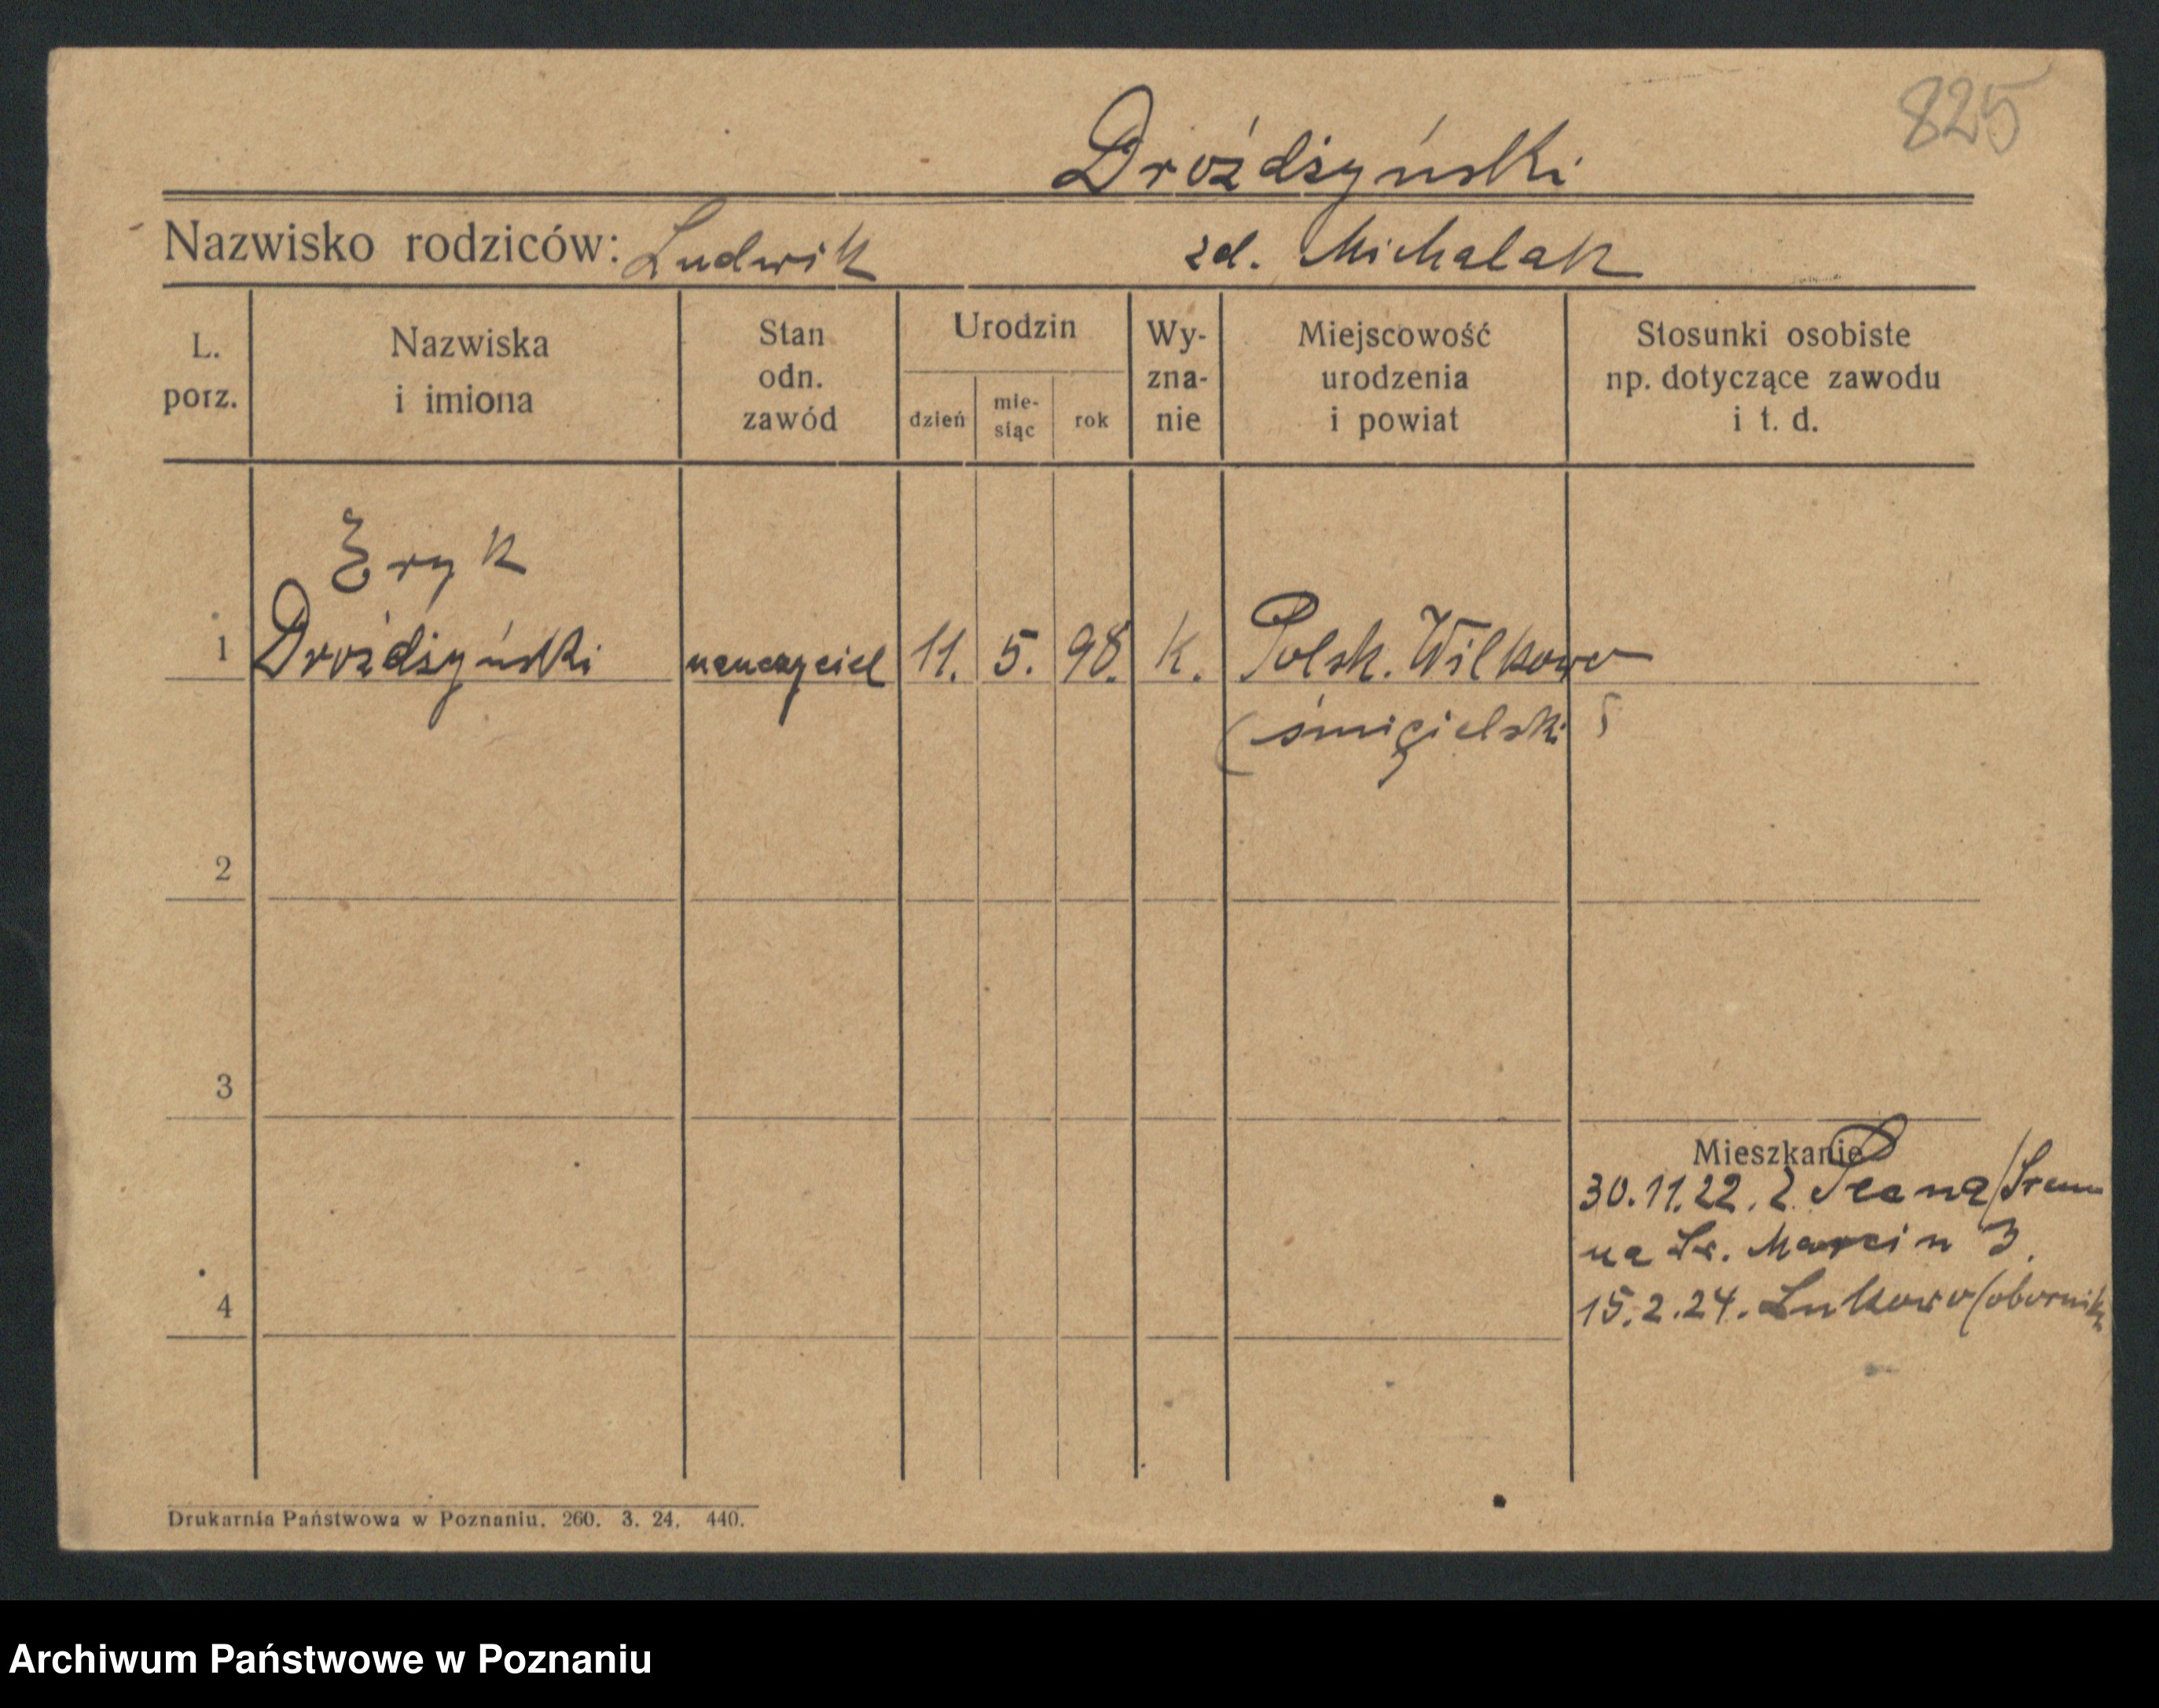 825
Drożdżyński
Nazwisko rodziców: Ludwik zd. Michalak
L. porz.
Nazwiska i imiona
Stan odn. zawód
Urodzin
dzień
mie-siąc
rok
Wy-zna-nie
Miejscowość urodzenia i powiat
Stosunki osobiste np. dotyczące zawodu i t. d.
Eryk
1 Drożdżyński nauczyciel 11. 5. 98. K. Polsk. Wilkowo
(śmigielski)
2
3
Mieszkanie
30.11.22. z
na Św. Marcin 3.
4
15.2.24. Łukowo/obornik
Drukarnia Państwowa w Poznaniu. 260. 3. 24. 440.
Archiwum Państwowe w Poznaniu